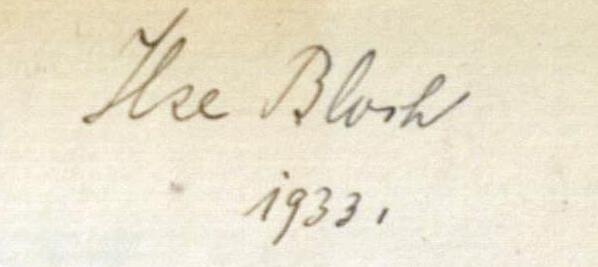 Ilse Bloch
1933.